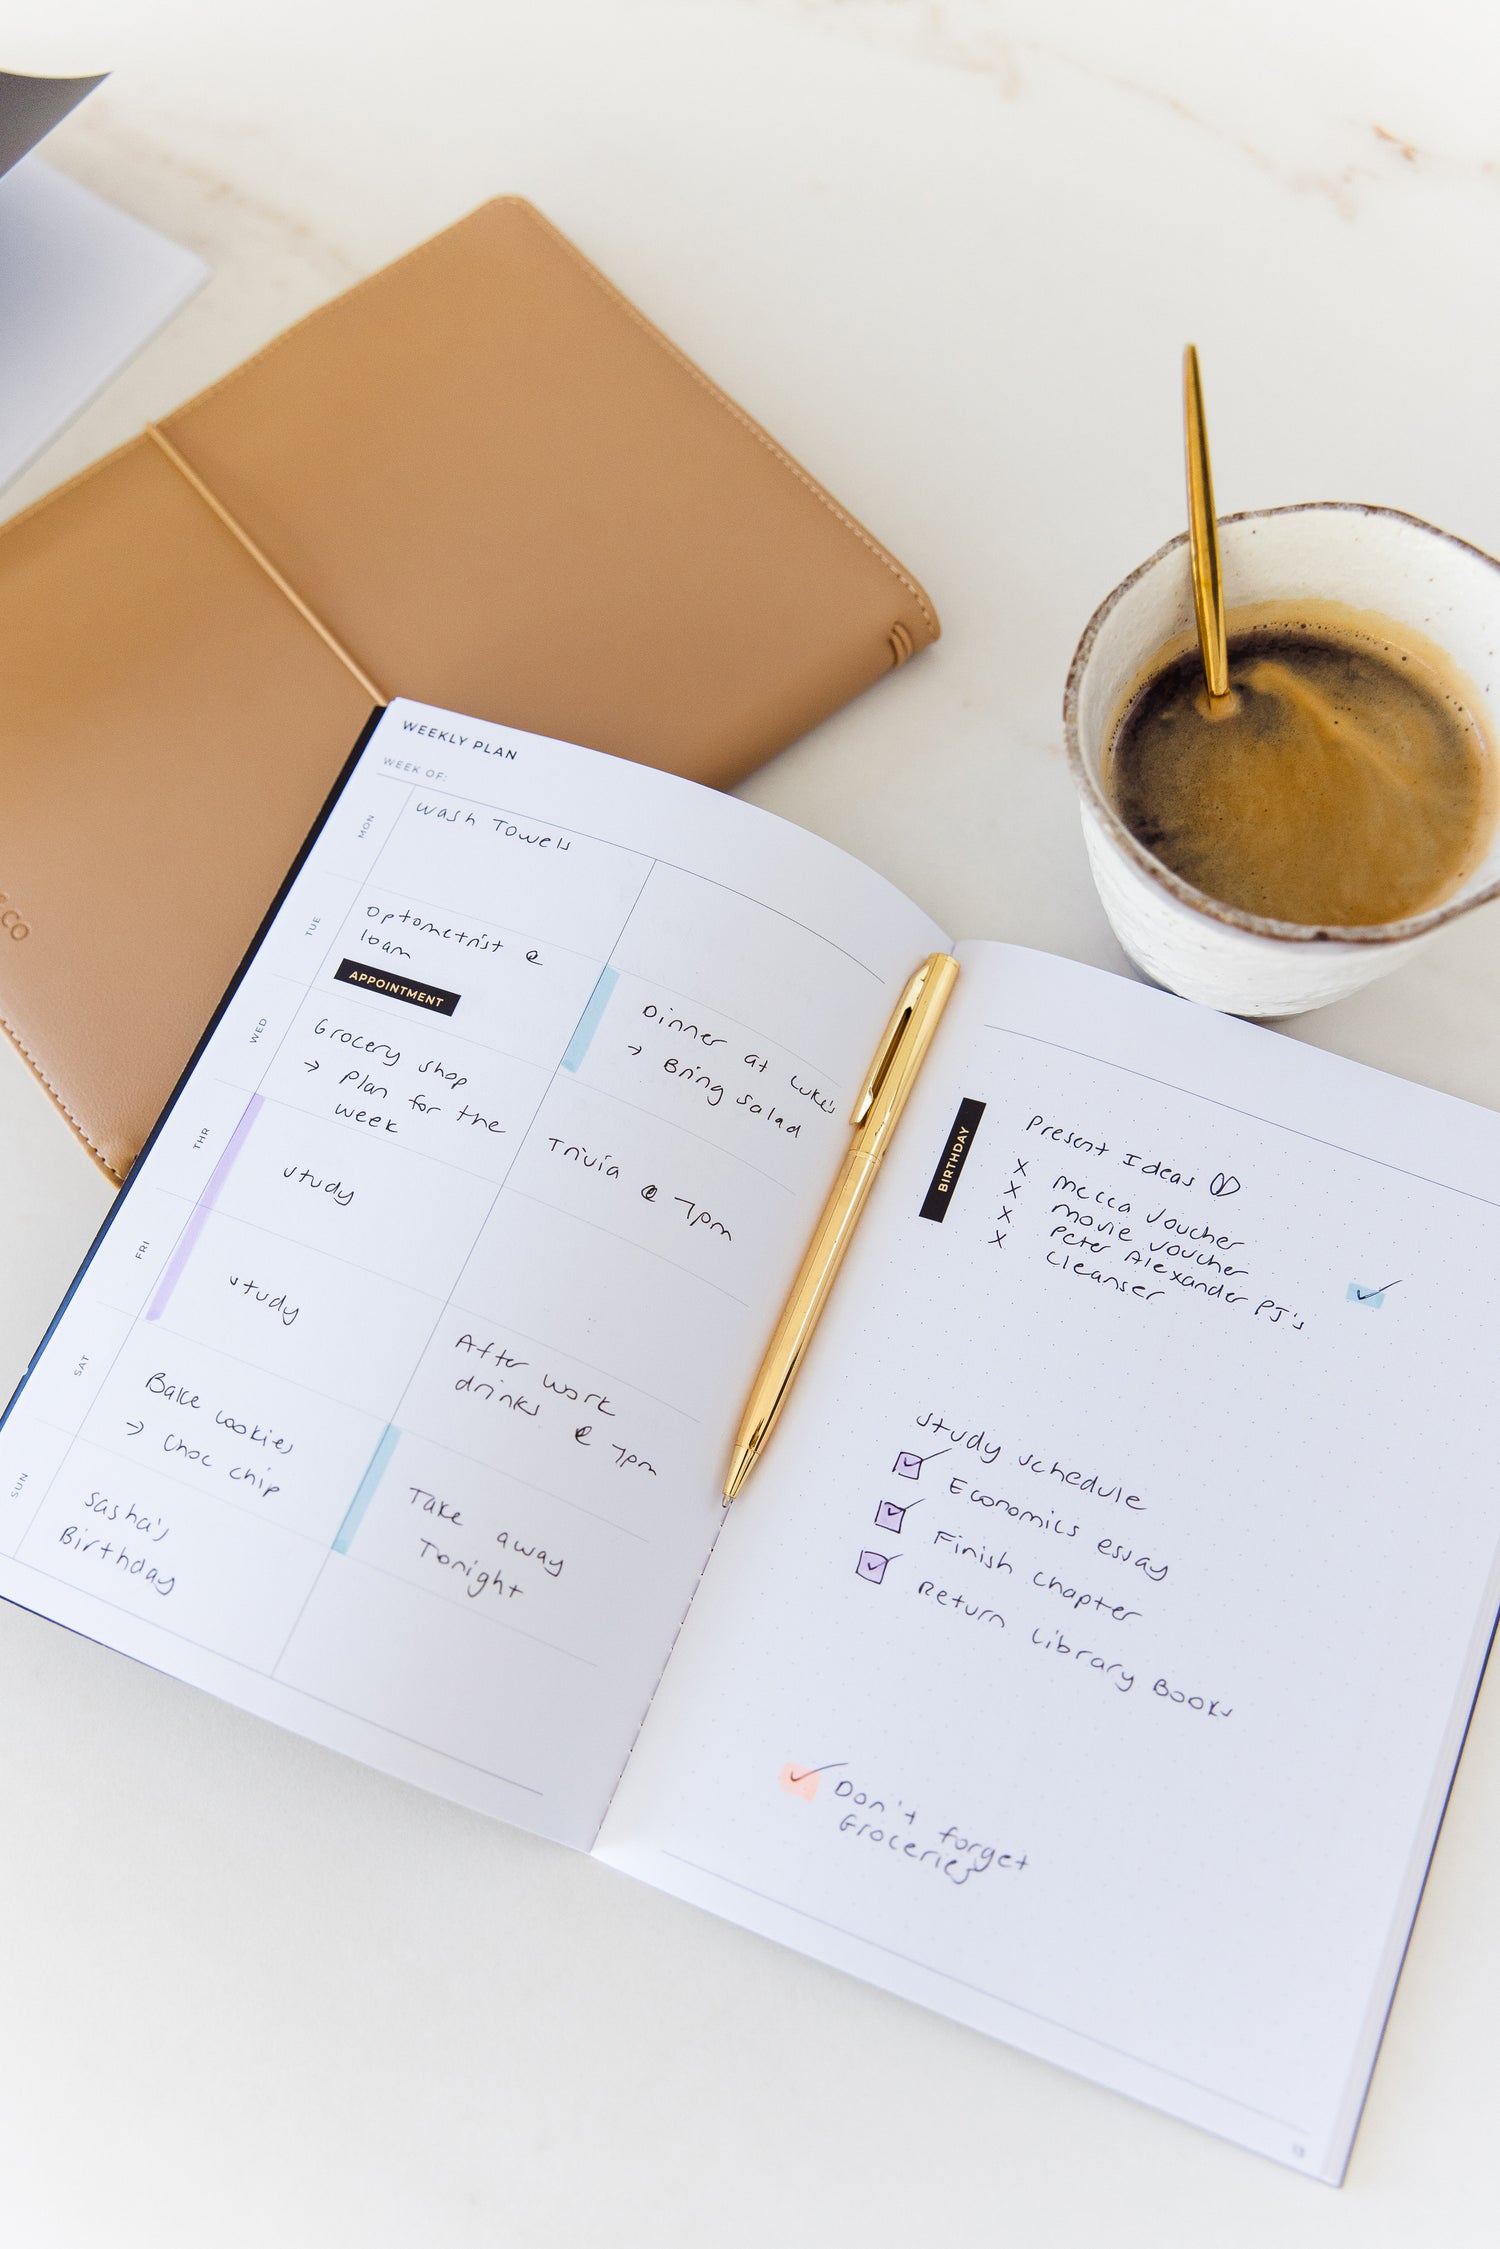 WEEKLY PLAN
WEEK OF:
MON
Wash Towels
TUE
Optometrist @
10am
APPOINTMENT
Dinner at Luke's
→ Bring salad
WED
Grocery shop
→ Plan for the
week
Trivia @ 7pm
THR
study
FRI
study
After work
drinks @ 7pm
SAT
Bake cookies
→ choc chip
Take away
Tonight
SUN
Sasha's
Birthday
BIRTHDAY
Present Ideas
X Mecca Voucher
X Movie Voucher
X Peter Alexander PJ's ✓
X Cleanser
Study schedule
☑ Economics essay
☑ Finish chapter
☑ Return Library Books
✓ Don't forget
Groceries
13
CO